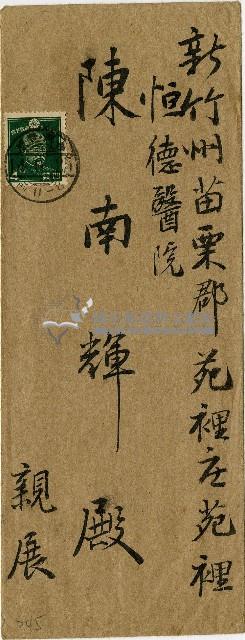 新竹州苗栗郡苑裡庄苑裡
恒德醫院
陳南輝殿
親展